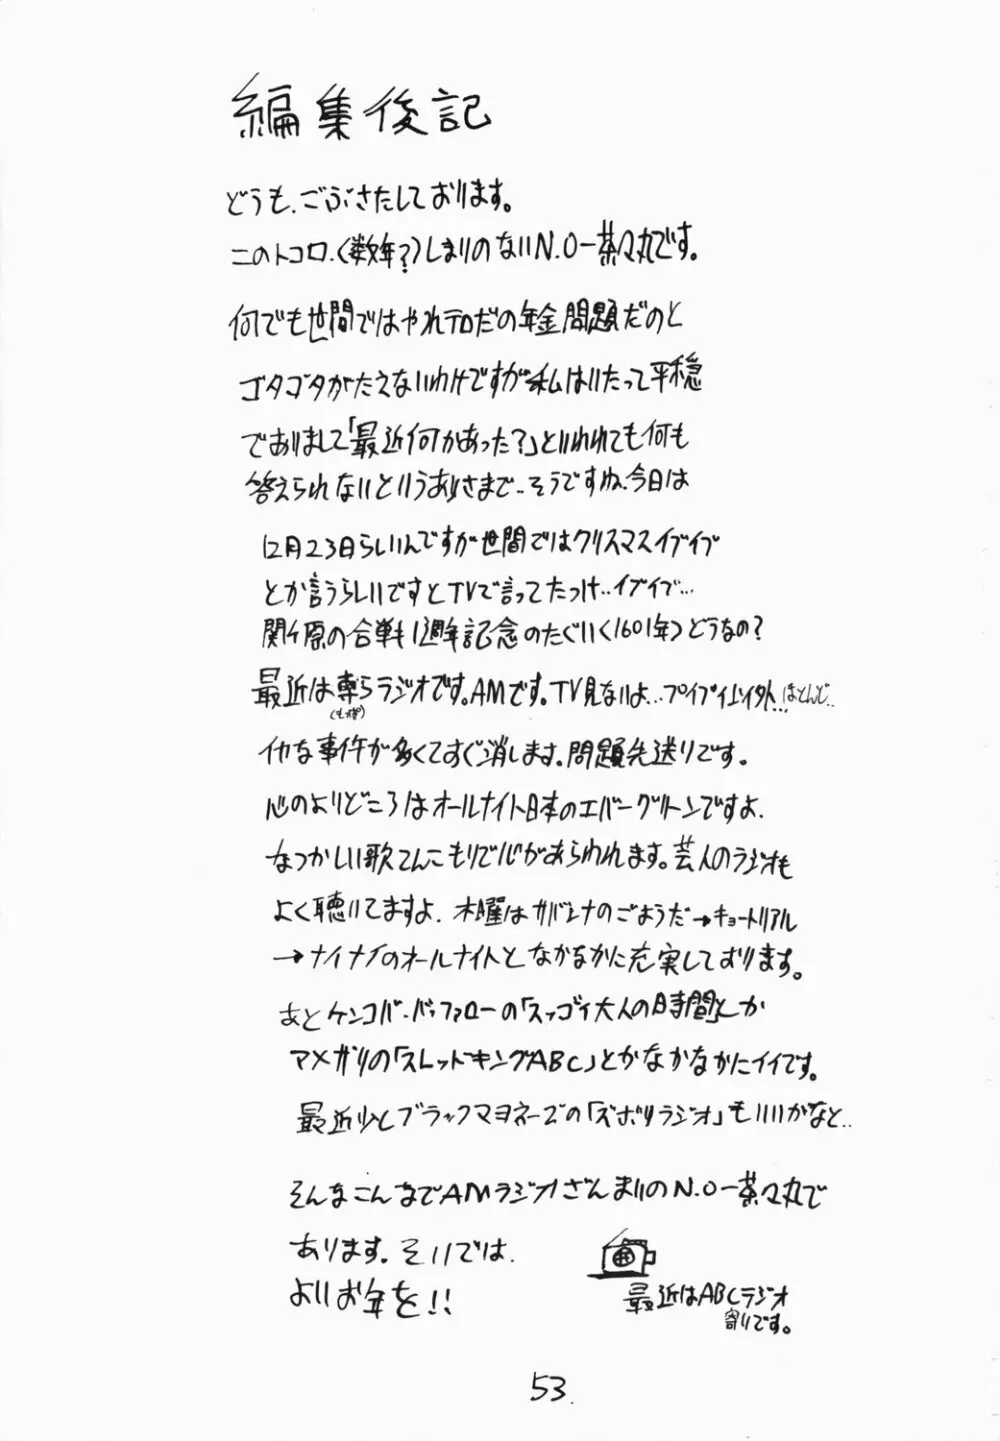 編集後記
どうも、ごぶさたしております。
このトコロ、(数年?)しまりのないN.O-茶々丸です。
何でも世間ではやれテロだの年金問題だのと
ゴタゴタがたえないわけですが私はいたって平穏
でありまして「最近何かあった?」といわれても何も
答えられないというありさまで..そうですね、今日は
12月23日らしいんですが世間ではクリスマスイブイブ
とか言うらしいですとTVで言ってたっけ..イブイブ...
関ヶ原の合戦も1周年記念のたぐい(1601年)どうなの?
最近は専らラジオです。AMです。TV見ないよ...
(もっぱ)
ほとんど..
イヤな事件が多くてすぐ消します。問題先送りです。
心のよりどころはオールナイト日本のエバーグリーンですよ.
なつかしい歌てんこもりで心があらわれます。芸人のラジオも
よく聴いてますよ. 木曜はサバンナのごようだ→キョートリアル
→ナイナイのオールナイトとなかなかに充実しております。
あとケンコバ・バッファローの「スッゴイ大人の時間」とか
アメザリの「スレッドキングABC」とかなかなかにイイです。
最近少しブラックマヨネーズの「ズボリラジオ」もいいかなと..
そんなこんなでAMラジオざんまいのN.O-茶々丸で
あります。それでは.
よいお年を!!
最近はABCラジオ
寄りです。
53.